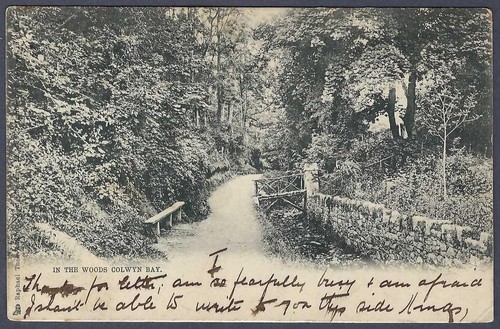 IN THE WOODS COLWYN BAY.
Raphael Tuck
I
Thanks for letter, am so fearfully busy & am afraid
I shan't be able to write to you this side Xmas,